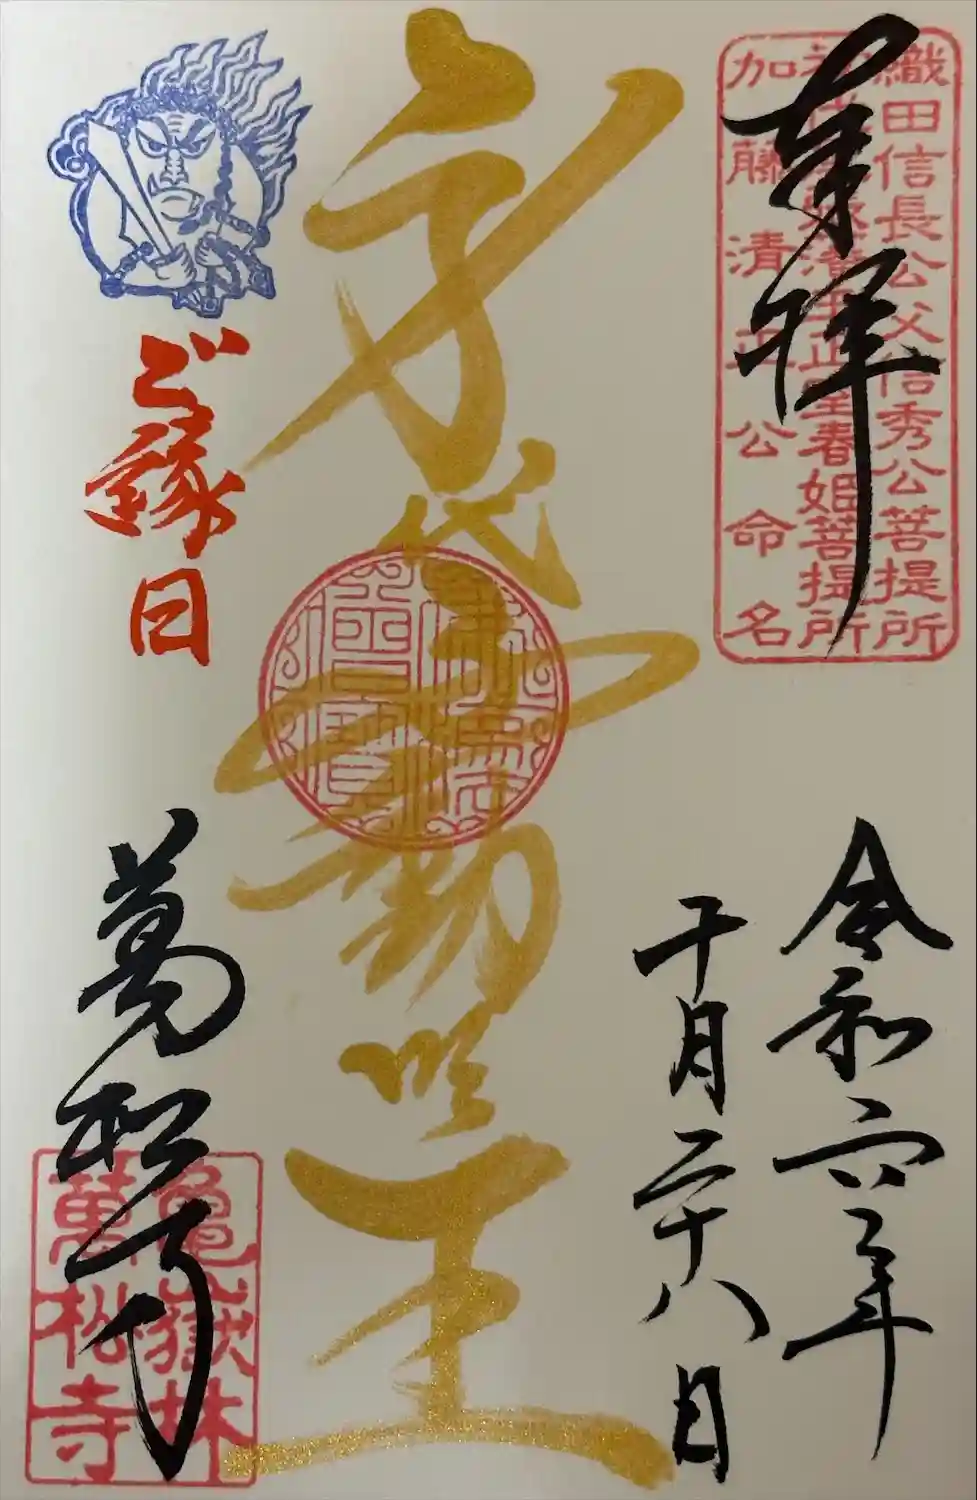 奉拝
織田信長公父信秀公菩提所
正室春姫菩提所
加藤清正公命名
令和六年
十月二十八日
身代不動明王
ご縁日
萬松寺
亀嶽林
萬松寺